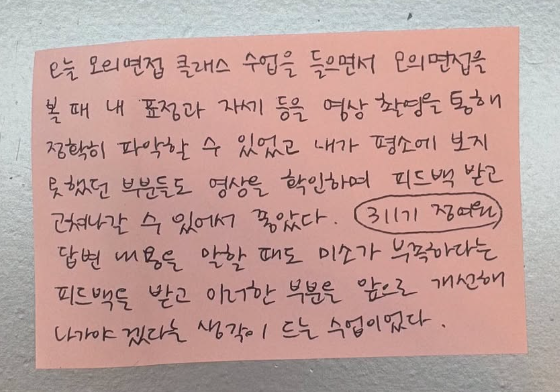 오늘 모의면접 클래스 수업을 들으면서 모의면접을
볼 때 내 표정과 자세 등을 영상 촬영을 통해
정확히 파악할 수 있었고 내가 평소에 보지
못했던 부분들도 영상을 확인하며 피드백 받고
고쳐나갈 수 있어서 좋았다. 311기
답변 내용을 말할 때도 미소가 부족하다는
피드백을 받고 이러한 부분을 앞으로 개선해
나가야 겠다는 생각이 드는 수업이었다.